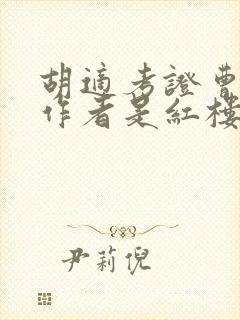 胡適考證曹
作者是紅樓
尹莉倪